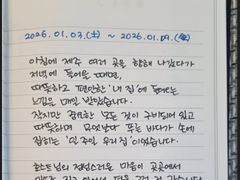 2026.01.03.(土) ~ 2026.01.09.(金)
아침에 제주 여러 곳을 향해 나갔다가
저녁에 돌아올 때면,
따뜻하고 편안한 '내 집'에 들어오는
느낌을 매일 받았습니다.
작지만 필요한 모든 것이 구비되어 있고
따뜻하며 무엇보다 또는 바다가 손에
잡히는 '민주네 우리 집'이었습니다.
호스트님의 정성스러운 마음이 곳곳에서